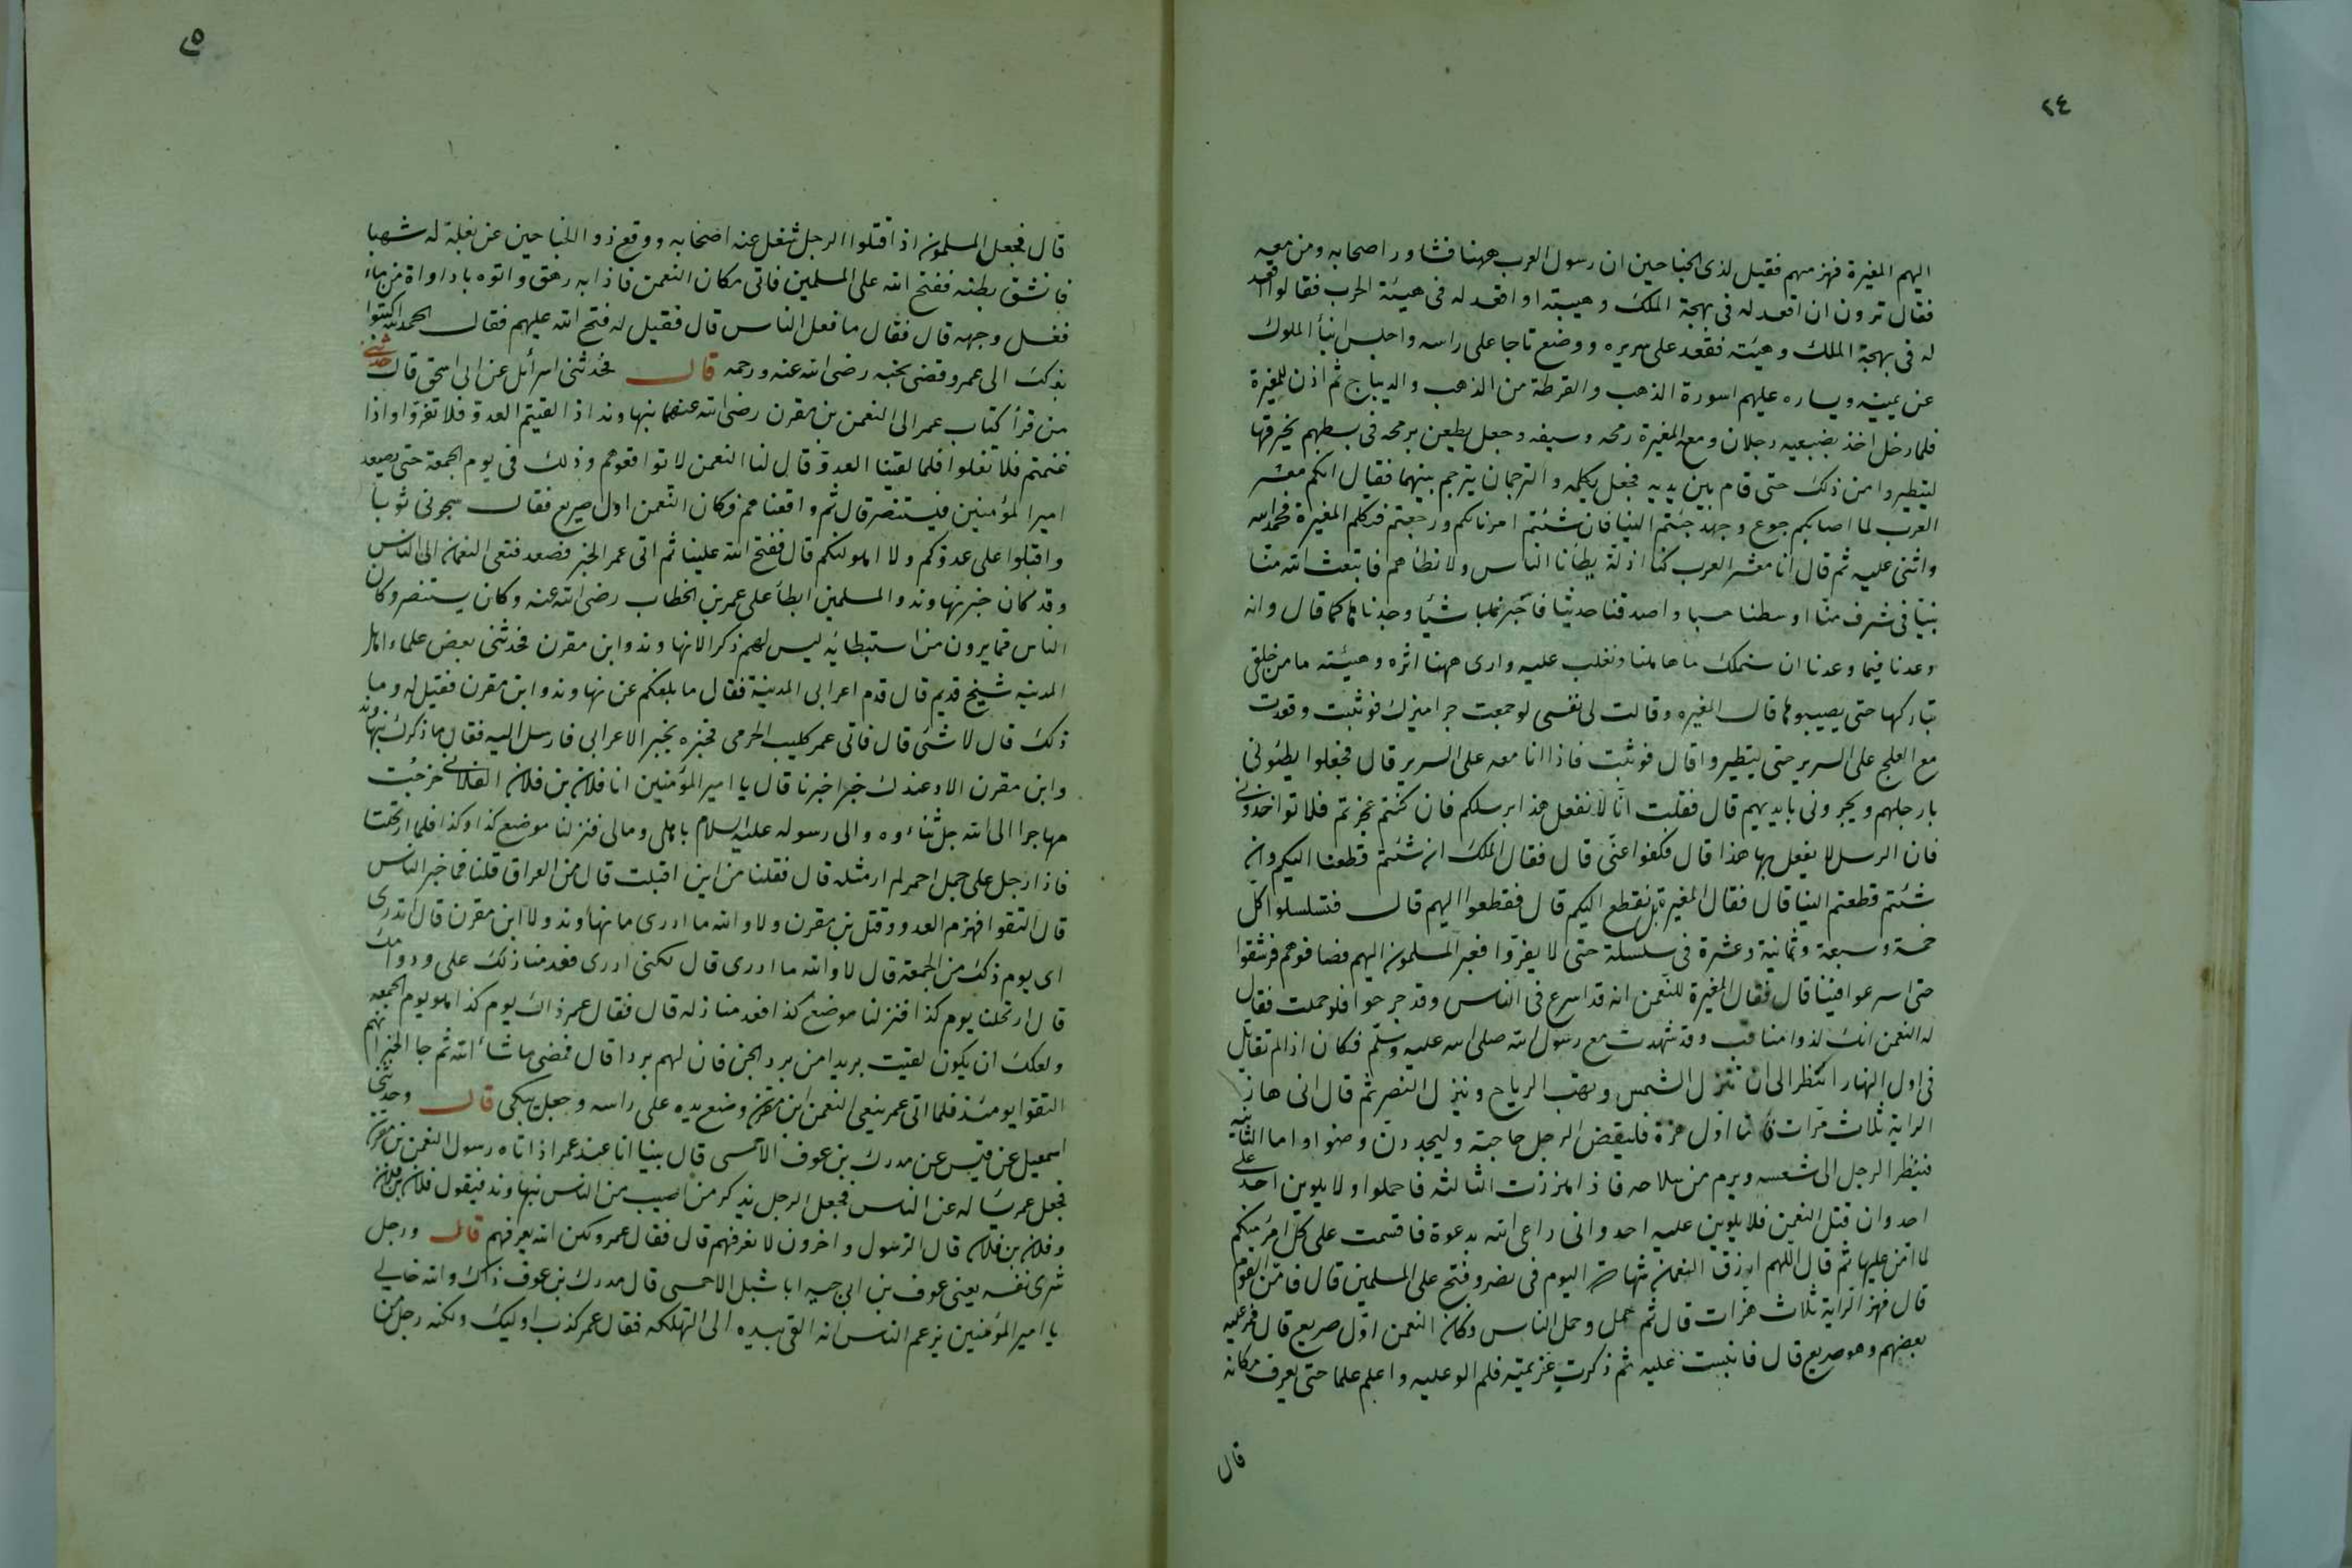 ٢٤
اليهم المغيرة فهزمهم فقيل لذى الجناحين ان رسول العرب ههنا فشاور اصحابه ومن معه
فقال ترون ان اقعد له فى بهجة الملك وهيبته او اقعد له فى هيئة الحرب فقالوا اقعد
له فى بهجة الملك وهيئته فقعد على سريره ووضع تاجا على راسه واجلس ابنأ الملوك
عن يمينه ويساره عليهم اسورة الذهب والقرطة من الذهب والديباج ثم اذن للمغيرة
فلما دخل اخذ بضبعيه رجلان ومع المغيرة رمحه وسيفه وجعل يطعن برمحه فى بسطهم يخرقها
ليتطيروا من ذلك حتى قام بين يديه فجعل يكلمه والترجمان يترجم بينهما فقال انكم معشر
العرب لما اصابكم جوع وجهد جئتم الينا فان شئتم امرنا لكم ورجعتم فتكلم المغيرة فحمد الله
واثنى عليه ثم قال انا معشر العرب كنا اذلة يطأنا الناس ولا نطاهم فابتعث الله منا
نبيّا فى شرف منّا اوسطنا حسبا واصدقنا حديثا فاخبرنا باشيأ وجدناها كما قال وانه
وعدنا فيما وعدنا ان سنملك ما هاهنا ونغلب عليه وارى ههنا اثره وهيئته ما من خلفى
بتاركها حتى يصيبوها قال المغيره وقالت لى نفسى لو جمعت جراميزك فوثبت وقعدت
مع العلج على السرير حتى يتطيروا قال فوثبت فاذا انا معه على السرير قال فجعلوا يطئونى
بارجلهم ويجرونى بايديهم قال فقلت انّا لا نفعل هذا برسلكم فان كنتم عجزتم فلا تواخذونى
فان الرسل لا يفعل بها هذا قال فكفوا عنّى قال فقال الملك ان شئتم قطعنا اليكم وان
شئتم قطعتم الينا قال فقال المغيرة بل نقطع اليكم قال فقطعوا اليهم قال فتسلسلوا كل
خمسة وسبعة وثمانية وعشرة فى سلسلة حتى لا يفرّوا فعبر المسلمون اليهم فصافوهم فرشقوا
حتى اسرعوا فينا قال فقال المغيرة للنعمن انه قد اسرع فى الناس وقد جرحوا فلو حملت فقال
له النعمن انك لذو مناقب وقد شهدت مع رسول الله صلى الله عليه وسلّم فكان اذا لم تقاتل
فى اول النهار انتظر الى ان تنزل الشمس وتهب الرياح وينزل النصر ثم قال انى هاز
الراية ثلاث مرات فاما اول هزة فليقض الرجل حاجته وليجددن وضوا واما الثانيه
فينظر الرجل الى شسعه ويرم من سلاحه فاذا هززت الثالثه فاحملوا ولا يلوين احد على
احد وان قتل النعمن فلا يلوين عليه احد وانى داعى الله بدعوة فاقسمت على كل امرئ منكم
لما امّن عليها ثم قال اللهم ارزق النعمن شهادة اليوم فى نصر وفتح على المسلمين قال فامّن القوم
قال فهز الراية ثلاث هزات قال ثم حمل وحمل الناس وكان النعمن اوّل صريع قال فمر عليه
بعضهم وهو صريع قال فاتيت عليه ثم ذكرت عزيمته فلم الو عليه واعلم علما حتى يعرف مكانه
قال
٢٥
قال فجعل المسلمون اذا قتلوا الرجل شغل عنه اصحابه ووقع ذو الجناحين عن بغلة له شهبا
فانشق بطنه ففتح الله على المسلمين فاتى مكان النعمن فاذا به رهق واتوه باداواة من ماء
فغسل وجهه قال فقال ما فعل الناس قال فقيل له فتح الله عليهم فقال الحمد لله اكتبوا
بذلك الى عمر وقضى نحبه رضى الله عنه ورحمه قال فحدثنى اسرائل عن ابى اسحق قال حدثنى
من قرأ كتاب عمر الى النعمن بن مقرن رضى الله عنهما بنهاوند اذا لقيتم العدو فلا تفرّوا واذا
غنمتم فلا تغلوا فلما لقينا العدوّ قال لنا النعمن لا تواقعوهم وذلك فى يوم الجمعة حتى يصعد
امير المؤمنين فيستنصر قال ثم واقعناهم فكان النعمن اول صريع فقال سجونى ثوبا
واقبلوا على عدوّكم ولا اهولنكم قال ففتح الله علينا ثم اتى عمر الخبر فصعد فنعى النعمان الى الناس
وقد كان خبر نهاوند والمسلمين ابطأ على عمر بن الخطاب رضى الله عنه وكان يستنصر وكان
الناس فما يرون من استبطائه ليس لهم ذكر الا نهاوند وابن مقرن فحدثنى بعض علماء اهل
المدينه شيخ قديم قال قدم اعرابى المدينة فقال ما بلغكم عن نهاوند وابن مقرن فقيل له وما
ذلك قال لا شئ قال فاتى عمر كليب الجرمى فخبره بخبر الاعرابى فارسل اليه فقال ما ذكرك نهاوند
وابن مقرن الا وعندك خبر اخبرنا قال يا امير المؤمنين انا فلان بن فلان الفلانى خرجت
مهاجرا الى الله جل ثناءوه والى رسوله عليه السلام باهلى ومالى فنزلنا موضع كذا وكذا فلما ارتحلنا
فاذا رجل على جمل احمر لم ار مثله قال فقلنا من اين اقبلت قال من العراق قلنا فما خبر الناس
قال التقوا فهزم العدو وقتل بن مقرن ولا والله ما ادرى ما نهاوند ولا ابن مقرن قال اتدرى
اى يوم ذلك من الجمعة قال لا والله ما ادرى قال لكنى ادرى فعد منازلك على
قال ارتحلنا يوم كذا فنزلنا موضع كذا فعد منازله قال فقال عمر ذاك يوم كذا هو يوم الجمعه
ولعلك ان يكون لقيت بريدا من برد الجن فان لهم بردا قال فمضى ما شاء الله ثم جا الخبر انهم
التقوا يومئذ فلما اتى عمر بنعى النعمن ابن مقرن وضع يده على راسه وجعل يبكى قال وحدثنى
اسمعيل عن قيس عن مدرك بن عوف الاحمسى قال بينا انا عند عمر اذ اتاه رسول النعمن بن مقرن
فجعل عمر يساله عن الناس فجعل الرجل يذكر من اصيب من الناس بنهاوند فيقول فلان بن فلان
وفلان بن فلان قال الرسول واخرون لا نعرفهم قال فقال عمر ولكن الله يعرفهم قال ورجل
شرى نفسه يعنى عوف بن ابى حيه ابا شبل الاحمسى قال مدرك بن عوف ذاك والله خالى
يا امير المؤمنين يزعم الناس انه القى بيده الى التهلكه فقال عمر كذب اوليك ولكنه رجل من